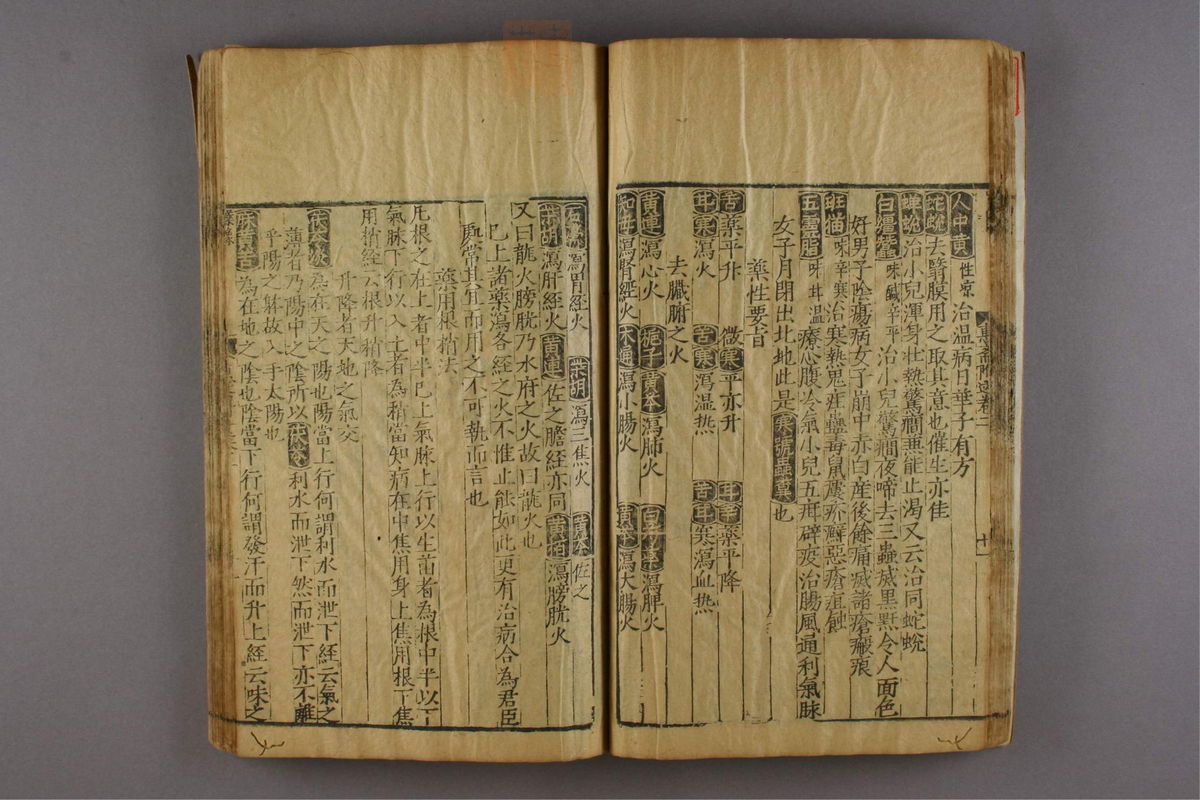 人中黄性凉治温病日華子有方
蛇蛻去翳膜用之取其意也催生亦佳
蟬蛻治小兒渾身壯熱驚癇兼能止渴又云治同蛇蛻
白殭蠶味鹹辛平治小兒驚癇夜啼去三蟲滅黒䵟令人面色
好男子陰瘍病女子崩中赤白産後餘痛滅諸瘡瘢痕
斑猫味辛寒治寒熱鬼疰蠱毒鼠瘻疥癬惡瘡疽蝕
五靈脂味甘温療心腹冷氣小兒五疳辟疫治腸風通利氣脉
女子月閉出北地此是寒號蟲糞也
藥性要旨
苦藥平升 微寒平亦升 甘辛藥平降
甘寒瀉火 苦寒瀉湿熱 苦甘寒瀉血熱
去臟腑之火
黄連瀉心火 梔子黄芩瀉肺火 白芍藥瀉脾火
知母瀉腎經火 木通瀉小腸火 黄芩瀉大腸火
石膏瀉胃經火 柴胡瀉三焦火 黄芩佐之
柴胡瀉肝經火黄連佐之膽經亦同黄栢瀉膀胱火
又曰龍火膀胱乃水府之火故曰龍火也
已上諸藥瀉各經之火不惟止能如此更有治病合為君臣
處常其宜而用之不可執而言也
藥用根梢法
凡根之在上者中半已上氣脉上行以生苗者為根中半以下
氣脉下行以入土者為梢當知病在中焦用身上焦用根下焦
用梢經云根升梢降
升降者天地之氣交
茯苓淡為在天之陽也陽當上行何謂利水而泄下經云氣之
薄者乃陽中之陰所以茯苓利水而泄下然而泄下亦不離
乎陽之躰故入手太陽也
麻黄苦為在地之陰也陰當下行何謂發汗而升上經云味之